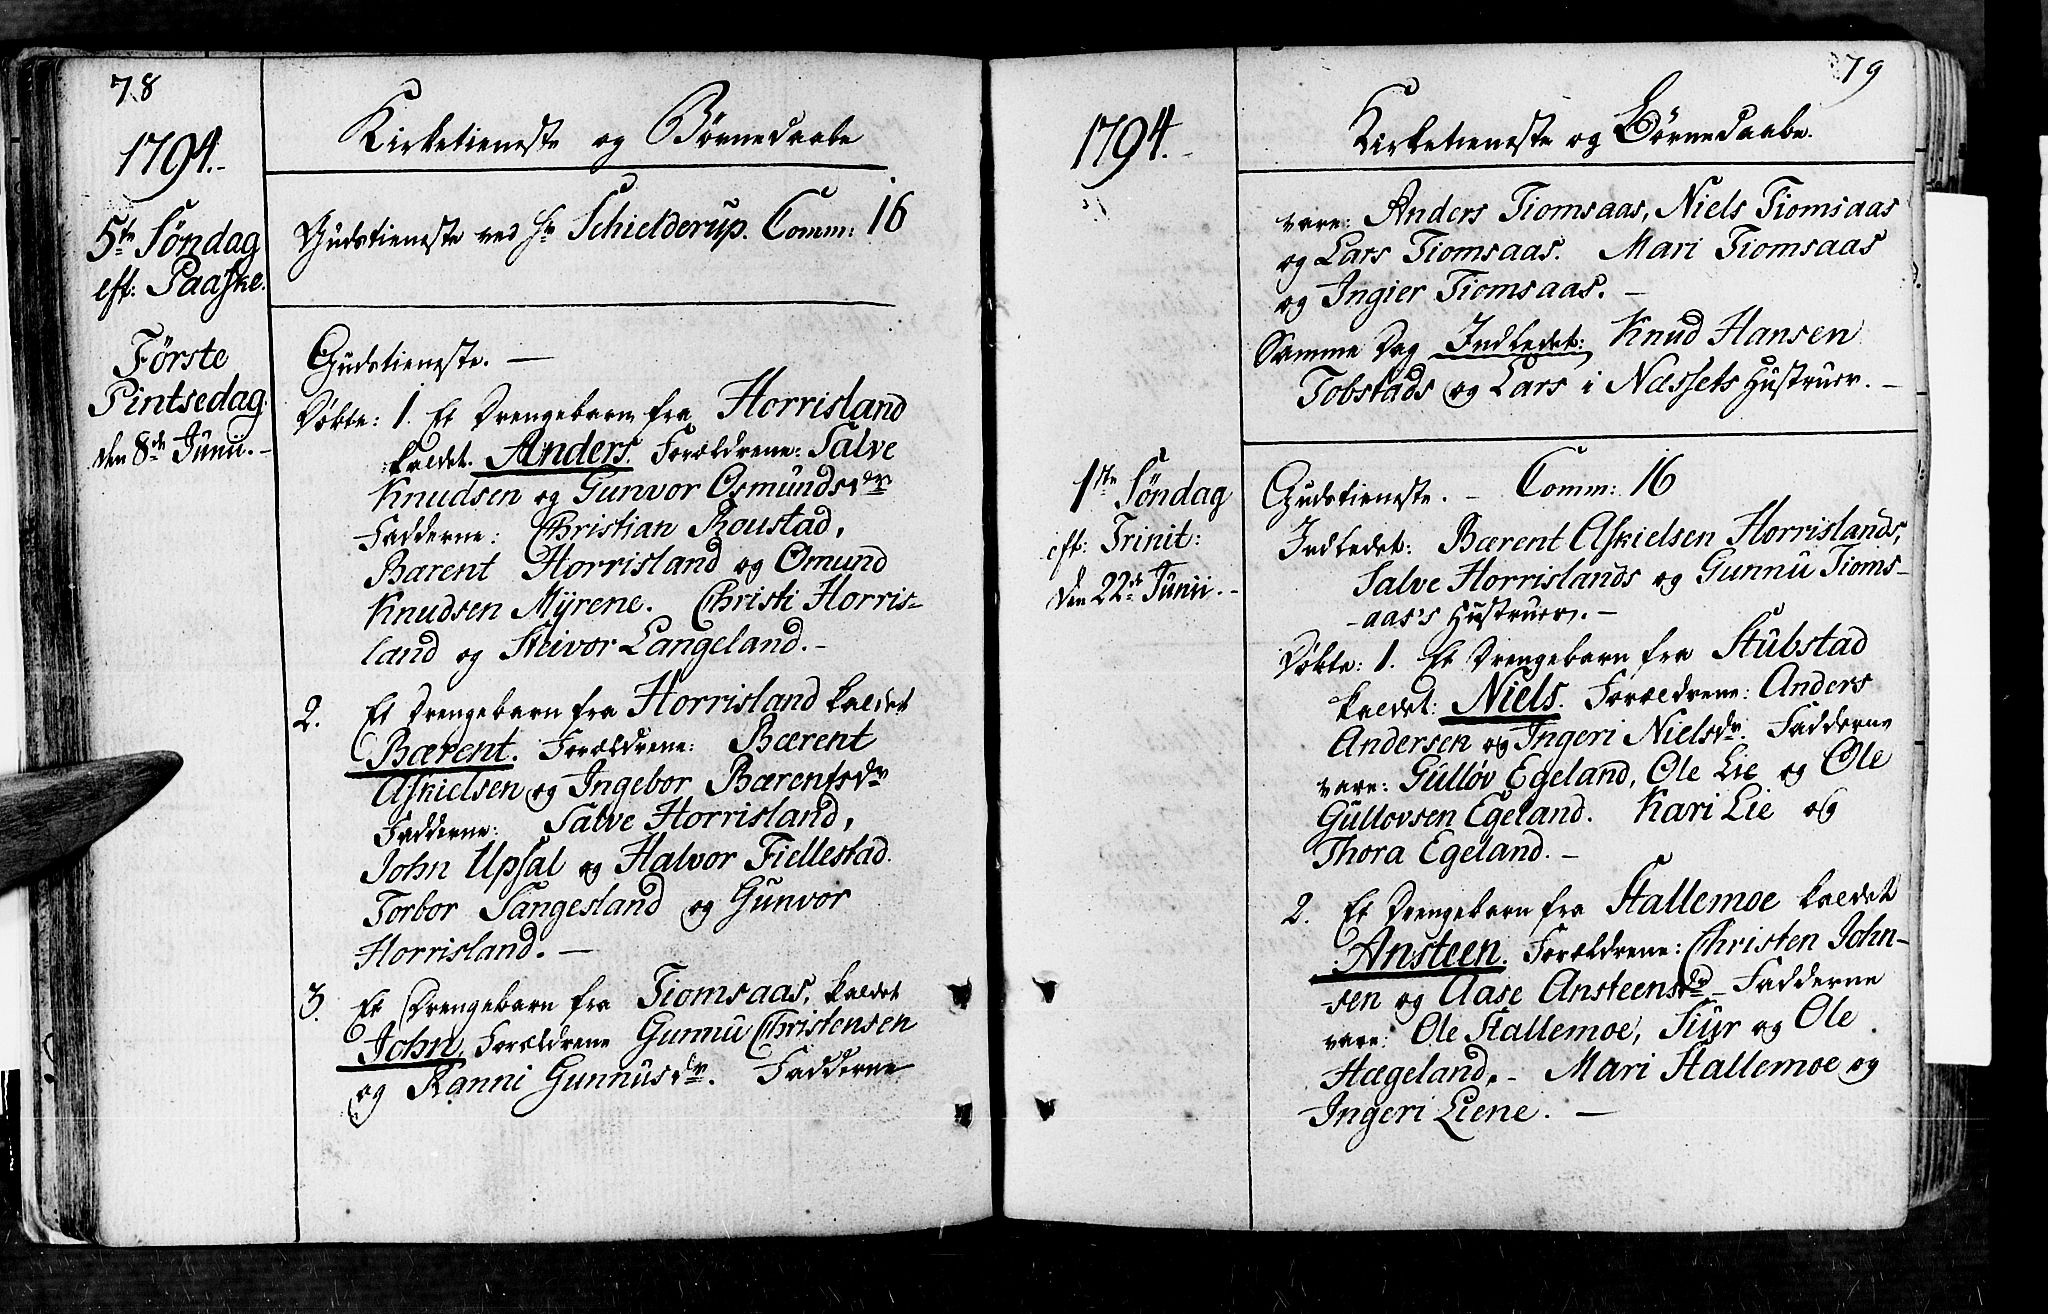 78
1794.
Kirketieneste og Børnedaabe
5te Søndag
eft: Paaske.
Gudstieneste ved Hr Schielderup. Comm: 16
Første
Pintsedag
den 8de Junii.-
Gudstieneste. —
Døbte: 1. Et Drengebarn fra Horrisland
kaldet. Anders. Forældrene: Salve
Knudsen og Gunvor Osmundsdr
Fadderne: Christian Roustad,
Barent Horrisland og Omund
Knudsen Myrene. Christi Horris-
land og Steivor Langeland. -
2. Et Drengebarn fra Horrisland kaldet
Bærent. Forældrene: Bærent
Askielsen og Ingebor Bærentsdr
Fadderne: Salve Horrisland,
John Upsal og Halvor Fiellestad.
Torbor Sangesland og Gunvor
Horrisland. —
3. Et Drengebarn fra Tiomsaas, kaldet
John, Forældrene Gunnu Christensen
og Ranni Gunnusdr. Fadderne
79
1794.-
Kirketieneste og Børnedaabe.
vare: Anders Tiomsaas, Niels Tiomsaas
og Lars Tiomsaas. Mari Tiomsaas
og Ingier Tiomsaas. -
Samme Dag Indledet: Knud Hansen
Tobstads og Lars i Næssets Hustruer. -
1ste Søndag
eft: Trinit:
den 22de Junii. -
Gudstieneste. - Comm: 16
Indledet: Bærent Askielsen Horrislands,
Salve Horrislands og Gunnu Tioms-
-aas's Hustruer. -
Døbte: 1. Et Drengebarn fra Stubstad
kaldet: Niels. Forældrene: Anders
Andersen og Ingeri Nielsdr. Fadderne
vare: Gulløv Egeland, Ole Lie og Ole
Gullovsen Egeland. Kari Lie og
Thora Egeland. -
2. Et Drengebarn fra Stallemoe kaldet
Ansteen. Forældrene: Christen John-
-sen og Aase Ansteensdr - Fadderne
vare: Ole Stallemoe, Siur og Ole
Hægeland. - Mari Stallemoe og
Ingeri Liene. —